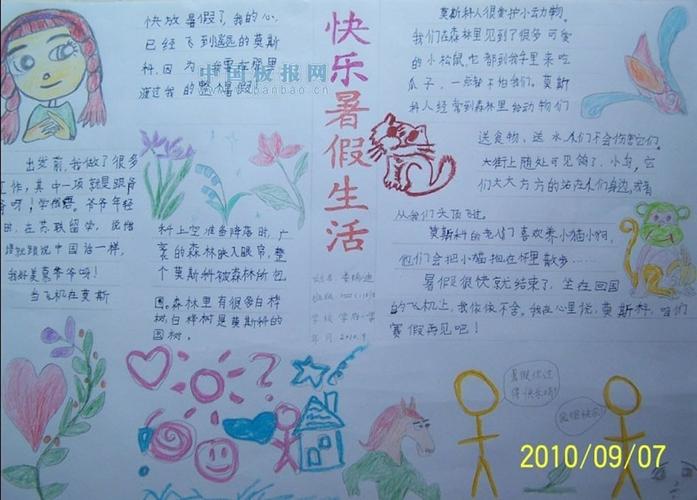 快乐暑假生活
快放暑假了,我的心
已经飞到遥远的莫斯
科,因为我要在那里
渡过我的整个暑假
中国板报网
出发前,我做了很多
工作,其中一项就是跟爷爷
呀!学俄语。爷爷年轻
时,在苏联留学,说俄
语就跟说中国话一样,
我好羡慕爷爷呀!
当飞机在莫斯
科上空准备降落时,广
袤的森林映入眼帘,整
个莫斯科被森林所包
围。森林里有很多白桦
树白桦树是莫斯科的
国树。
莫斯科人很爱护小动物。
我们在森林里见到了很多可爱
的小松鼠,它都到我手里来吃
瓜子,一点都不怕我们。莫斯
科人经常到森林里给动物们
送食物、送水人们不会伤害它们。
大街上随处可见鸽子、小鸟,它
们大大方方的站在人们身边,或者
从我们头顶飞过。
莫斯科的老人们喜欢养小猫小狗,
他们会把小猫抱在怀里散步……
暑假很快就结束了,坐在回国
的飞机上,我依依不舍。我在心里说,莫斯科,咱们
寒假再见吧!
姓名
班级
学校
年月 2010.9
暑假你过
得快乐吗
2010/09/07